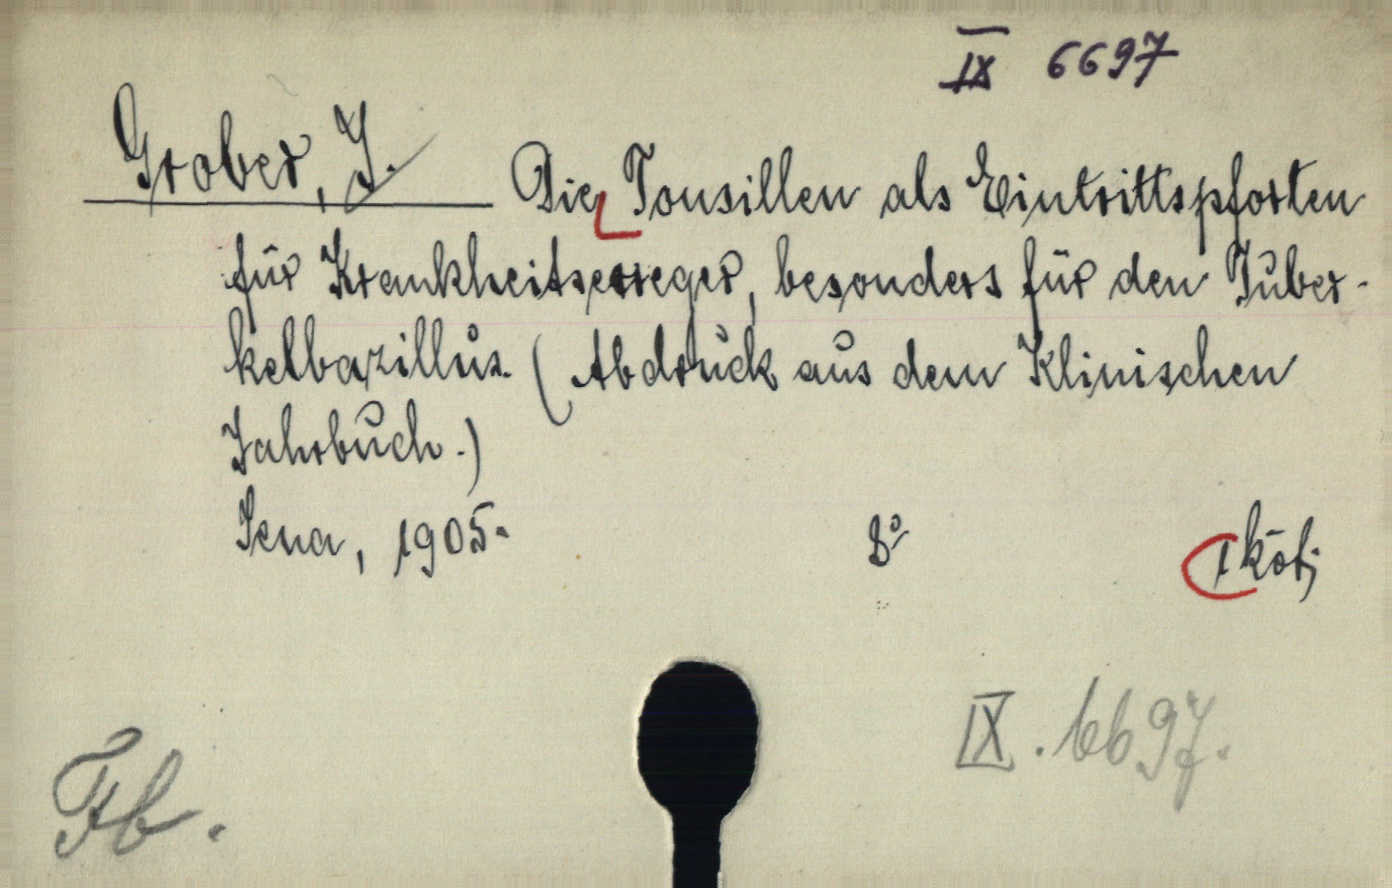 IX 6697
Grober, J. Die Tonsillen als Eintrittspforten
für Krankheitserreger, besonders für den Tuber-
kelbazillus. (Abdruck aus dem Klinischen
Jahrbuch.)
Jena, 1905. 8° 1 köt;
IX. 6697.
Fb.